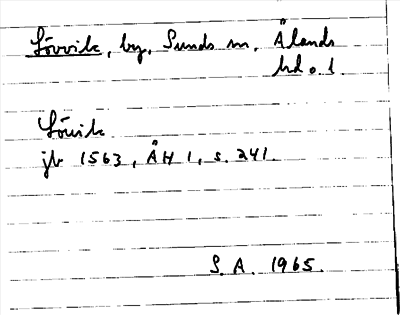 Lövvik, by, Sunds sn, Ålands
hd o. l.
Lövik
jb 1563, ÅH 1, s. 241.
S. A. 1965.